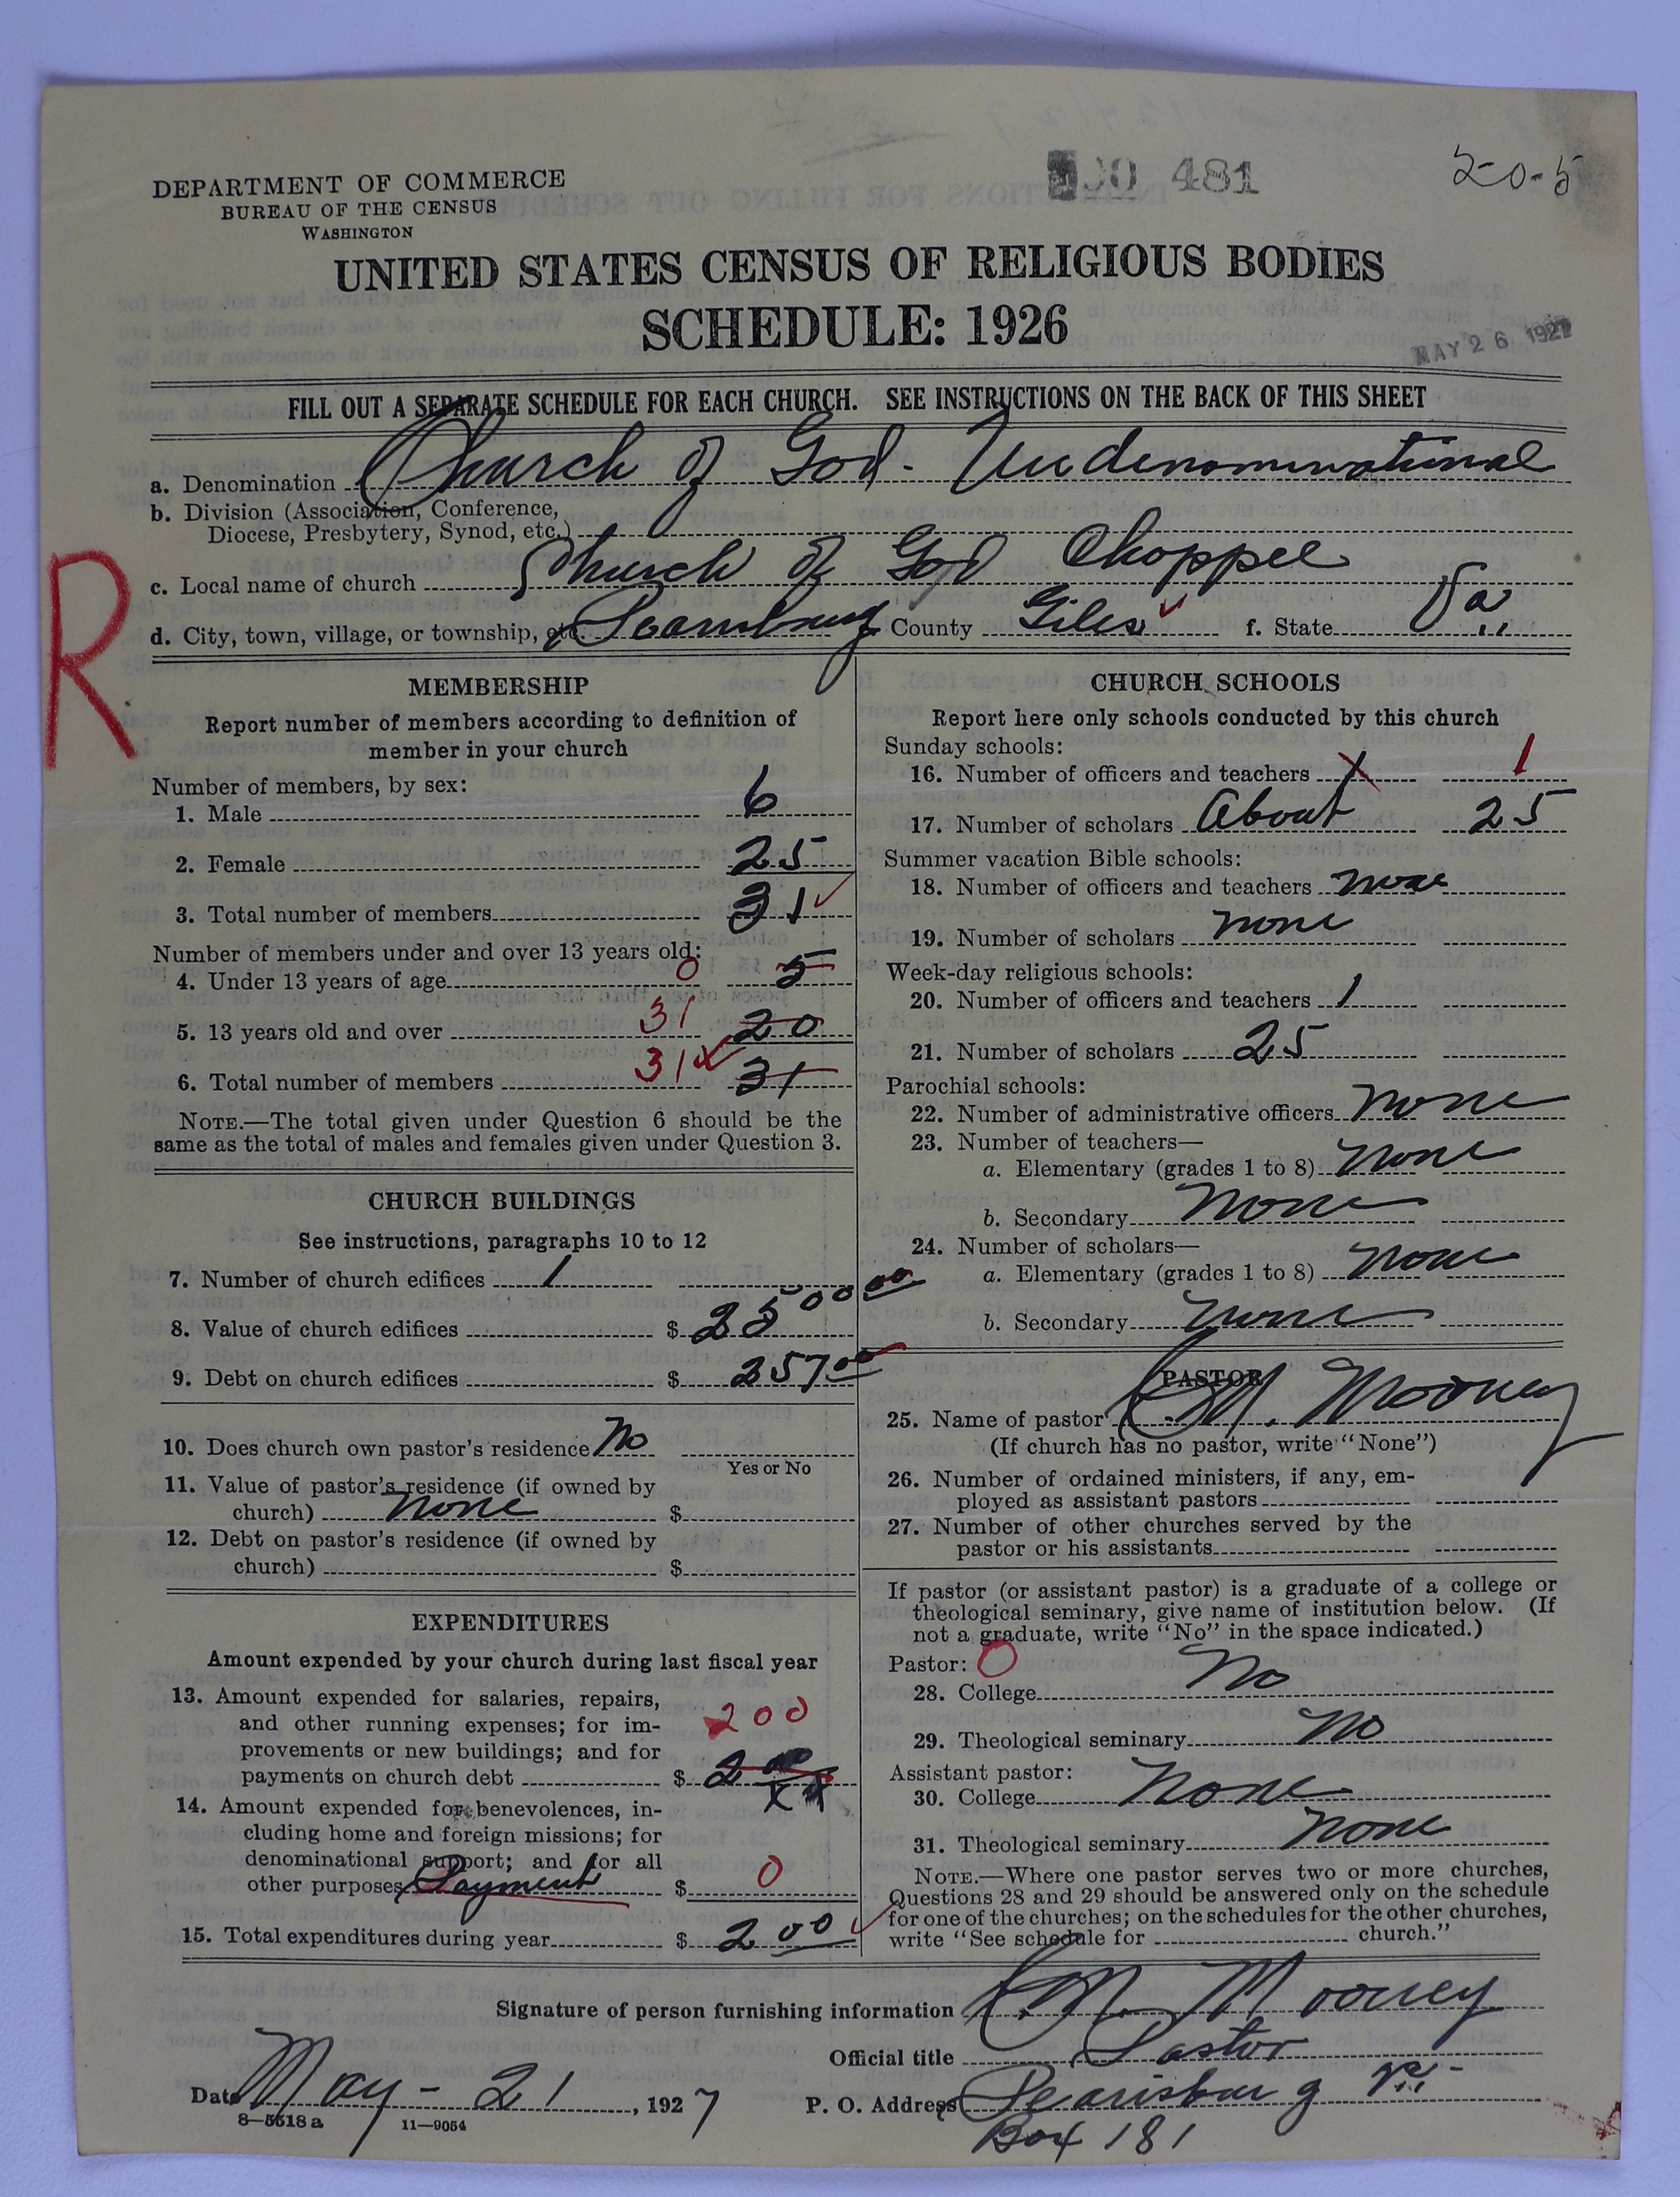 DEPARTMENT OF COMMERCE
BUREAU OF THE CENSUS
WASHINGTON
481
20-5
UNITED STATES CENSUS OF RELIGIOUS BODIES
SCHEDULE: 1926
MAY 26 1927
FILL OUT A SEPARATE SCHEDULE FOR EACH CHURCH. SEE INSTRUCTIONS ON THE BACK OF THIS SHEET
a. Denomination Church of God. Undenominational
b. Division (Association, Conference,
Diocese, Presbytery, Synod, etc.)
c. Local name of church Church of God Chappel
d. City, town, village, or township, etc. County Giles f. State Va.
R
MEMBERSHIP
Report number of members according to definition of
member in your church
Number of members, by sex:
1. Male 6
2. Female 25
3. Total number of members 31
Number of members under and over 13 years old:
4. Under 13 years of age 0 5
5. 13 years old and over 31 20
6. Total number of members 31 31
NOTE.—The total given under Question 6 should be the
same as the total of males and females given under Question 3.
CHURCH BUILDINGS
See instructions, paragraphs 10 to 12
7. Number of church edifices 1
8. Value of church edifices $ 2500 00
9. Debt on church edifices $ 257 00
10. Does church own pastor's residence No
Yes or No
11. Value of pastor's residence (if owned by
church) none $
12. Debt on pastor's residence (if owned by
church) $
EXPENDITURES
Amount expended by your church during last fiscal year
13. Amount expended for salaries, repairs,
and other running expenses; for im-
provements or new buildings; and for
payments on church debt $ 200
14. Amount expended for benevolences, in-
cluding home and foreign missions; for
denominational support; and for all
other purposes Payment $ 0
15. Total expenditures during year $ 200
CHURCH SCHOOLS
Report here only schools conducted by this church
Sunday schools:
16. Number of officers and teachers 1 1
17. Number of scholars About 25
Summer vacation Bible schools:
18. Number of officers and teachers none
19. Number of scholars none
Week-day religious schools:
20. Number of officers and teachers 1
21. Number of scholars 25
Parochial schools:
22. Number of administrative officers none
23. Number of teachers—
a. Elementary (grades 1 to 8) none
b. Secondary none
24. Number of scholars—
a. Elementary (grades 1 to 8) none
b. Secondary none
PASTOR
25. Name of pastor C. M. Mooney
(If church has no pastor, write "None")
26. Number of ordained ministers, if any, em-
ployed as assistant pastors
27. Number of other churches served by the
pastor or his assistants
If pastor (or assistant pastor) is a graduate of a college or
theological seminary, give name of institution below. (If
not a graduate, write "No" in the space indicated.)
Pastor: 0
28. College No
29. Theological seminary No
Assistant pastor:
30. College None
31. Theological seminary None
NOTE.—Where one pastor serves two or more churches,
Questions 28 and 29 should be answered only on the schedule
for one of the churches; on the schedules for the other churches,
write "See schedule for church."
Signature of person furnishing information C. M. Mooney
Official title Pastor
Date May - 21, 1927 P. O. Address Pearisburg Va.
8—5518a 11—9054
Box 181